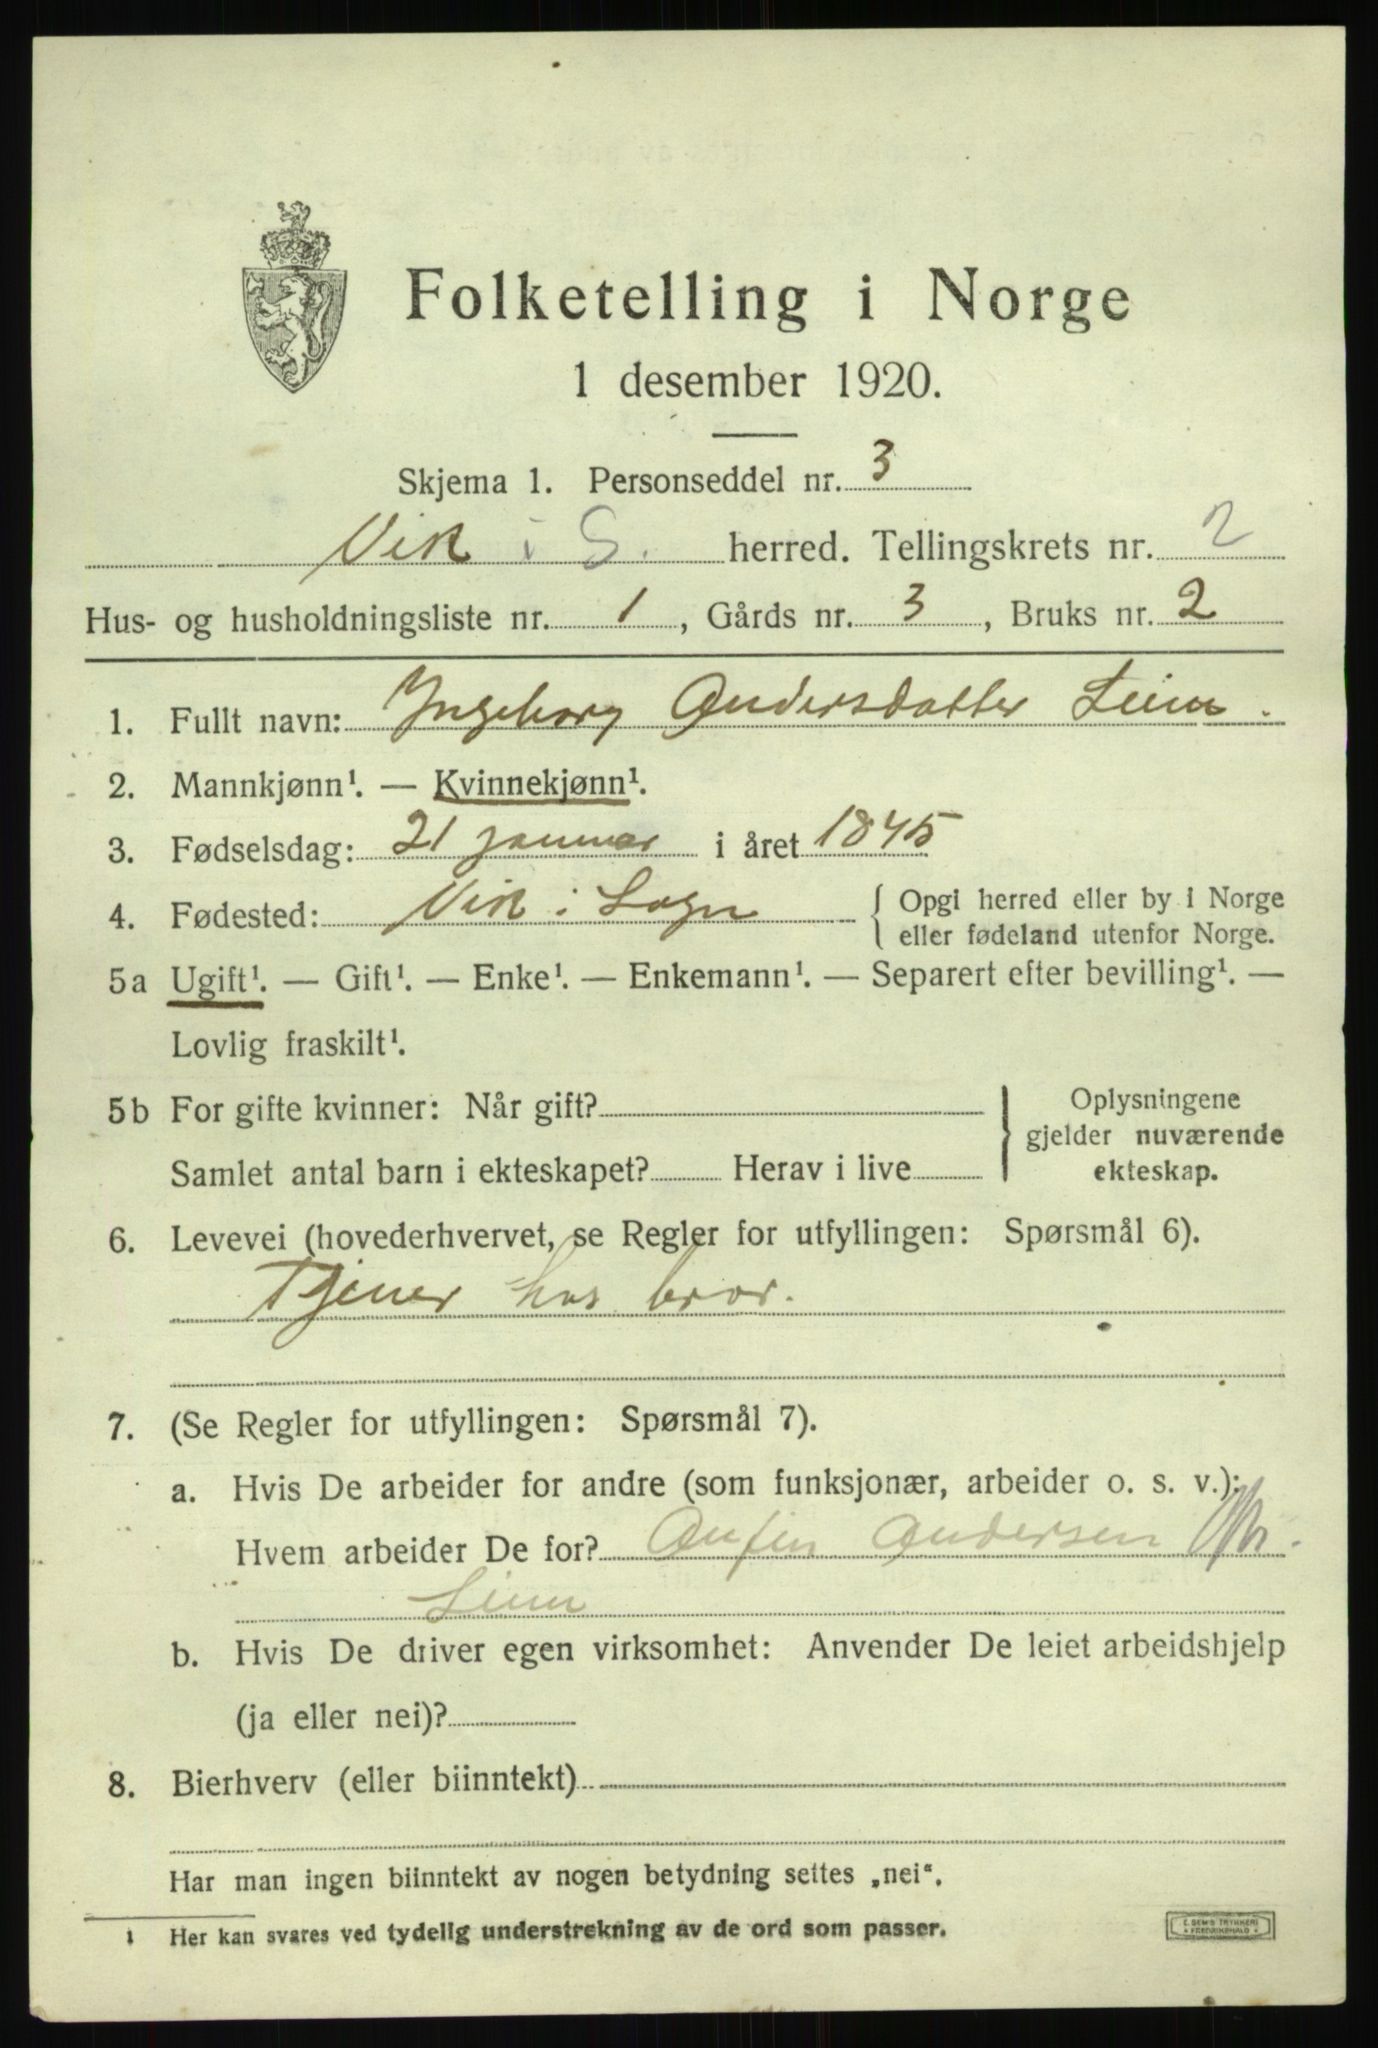 Folketelling i Norge
1 desember 1920.
Skjema 1. Personseddel nr. 3
Vik i S. herred. Tellingskrets nr. 2
Hus- og husholdningsliste nr. 1, Gårds nr. 3, Bruks nr. 2
1. Fullt navn: Ingeborg Andersdatter Leim.
2. Mannkjønn¹. — Kvinnekjønn¹.
3. Fødselsdag: 21 januar i året 1845
4. Fødested: Vik i Sogn { Opgi herred eller by i Norge
eller fødeland utenfor Norge.
5a Ugift¹. — Gift¹. — Enke¹. — Enkemann¹. — Separert efter bevilling¹. —
Lovlig fraskilt¹.
5b For gifte kvinner: Når gift?
Samlet antal barn i ekteskapet? Herav i live
} Oplysningene
gjelder nuværende
ekteskap.
6. Levevei (hovederhvervet, se Regler for utfyllingen: Spørsmål 6).
Tjener hos bror.
7. (Se Regler for utfyllingen: Spørsmål 7).
a. Hvis De arbeider for andre (som funksjonær, arbeider o. s. v.):
Hvem arbeider De for? Anfin Andersen
Leim
b. Hvis De driver egen virksomhet: Anvender De leiet arbeidshjelp
(ja eller nei)?
8. Bierhverv (eller biinntekt)
Har man ingen biinntekt av nogen betydning settes „nei“.
1 Her kan svares ved tydelig understrekning av de ord som passer.
E. SEM'S TRYKKERI
FREDRIKSHALD